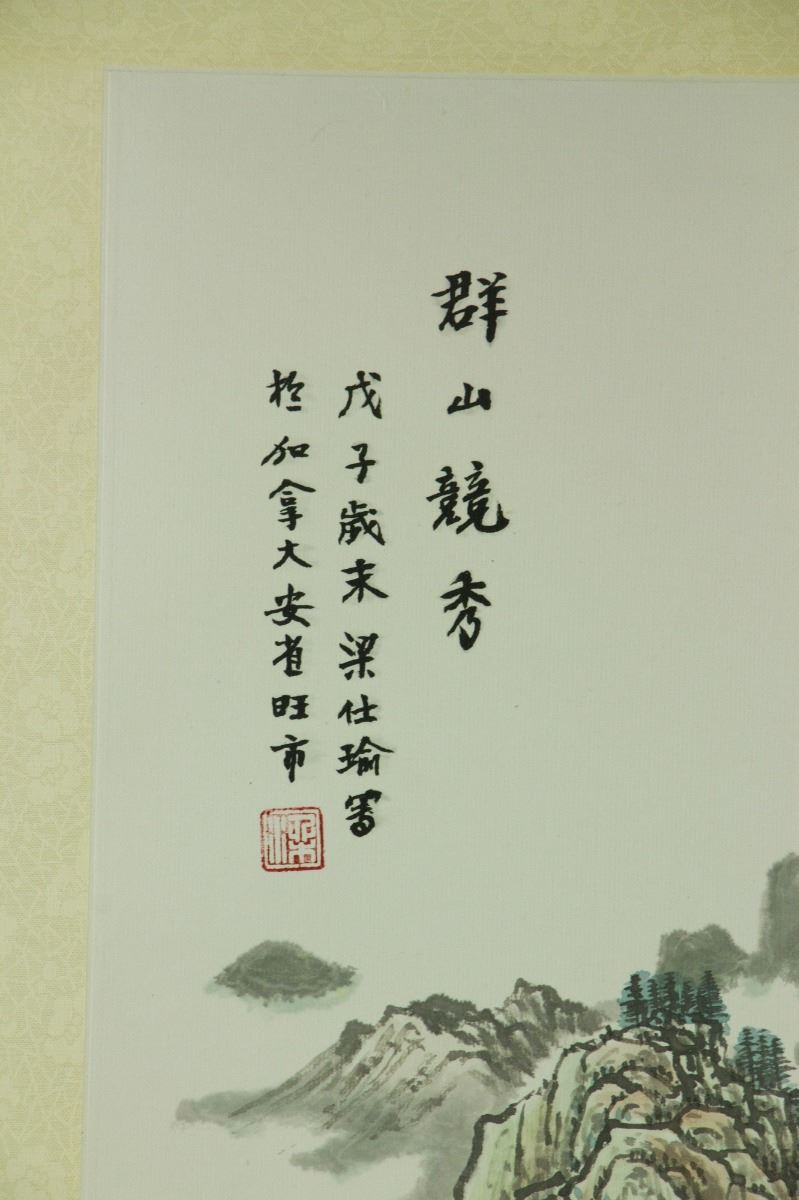 群山競秀
戊子歲末梁仕瑜寫
於加拿大安省旺市
梁